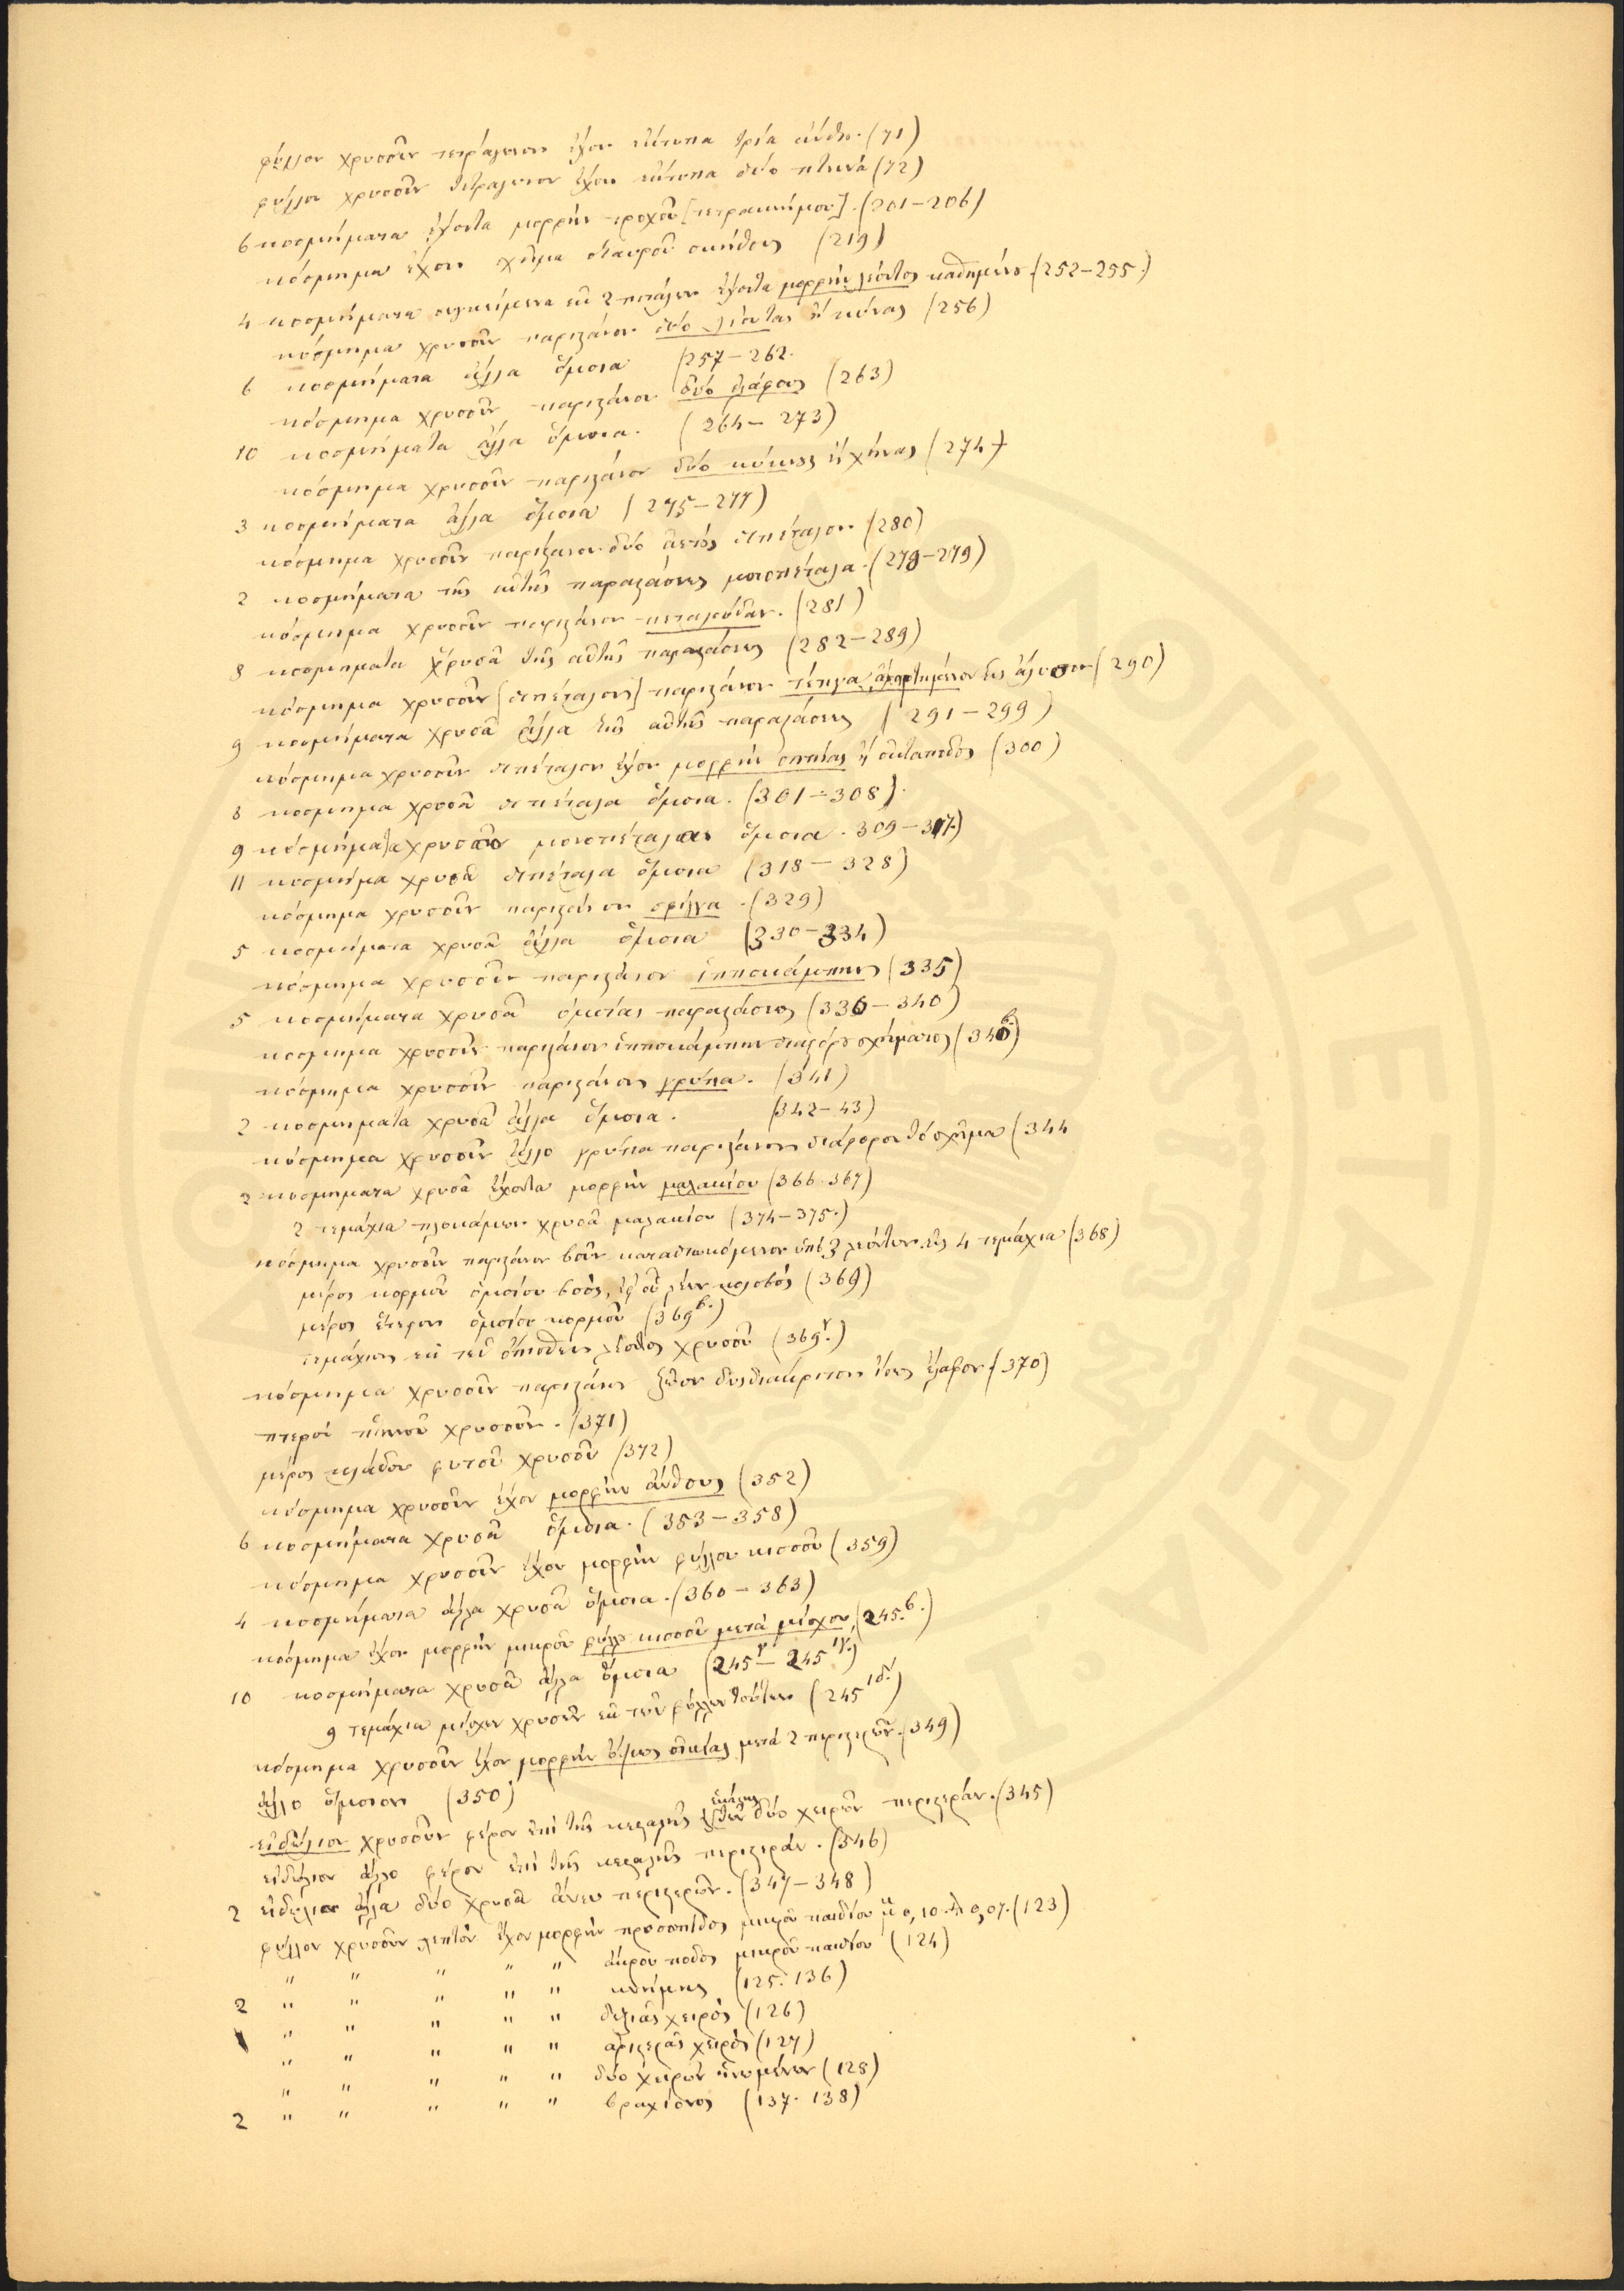 φύλλον χρυσοῦν τετράγωνον ἔχον ἔκτυπα τρία ἄνθη. (71)
φύλλον χρυσοῦν τετράγωνον ἔχον ἔκτυπα δύο πτηνά (72)
6 κοσμήματα ἔχοντα μορφὴν τροχοῦ [τετρακνήμου]. (201–206)
κόσμημα ἔχον σχῆμα σταυροῦ συνήθους (219)
4 κοσμήματα συγκείμενα ἐκ 2 πετάλων ἔχοντα μορφὴν λέοντος καθημένου (252–255.)
κόσμημα χρυσοῦν παριστάνον δύο λέοντας ἢ κύνας (256)
6 κοσμήματα ἄλλα ὅμοια (257–262.
κόσμημα χρυσοῦν παριστάνον δύο ἐλάφους (263)
10 κοσμήματα ἄλλα ὅμοια. (264–273)
κόσμημα χρυσοῦν παριστάνον δύο κύκνους ἢ χῆνας (274)
3 κοσμήματα ἄλλα ὅμοια (275–277)
κόσμημα χρυσοῦν παριστάνον δύο ἀετοὺς διπέταλον (280)
2 κοσμήματα τῆς αὐτῆς παραστάσεως μονοπέταλα. (278–279)
κόσμημα χρυσοῦν παριστάνον πεταλούδαν. (281)
8 κοσμήματα χρυσᾶ τῆς αὐτῆς παραστάσεως (282–289)
κόσμημα χρυσοῦν [διπέταλον] παριστάνον τέτιγα, ἀνηρτημένον εἰς ἅλυσον (290)
9 κοσμήματα χρυσᾶ ἄλλα τῆς αὐτῆς παραστάσεως (291–299)
κόσμημα χρυσοῦν διπέταλον ἔχον μορφὴν σηπίας ἢ ὀκτάποδος (300)
8 κόσμημα χρυσᾶ διπέταλα ὅμοια. (301–308).
9 κόσμήματα χρυσᾶ μονοπέταλα ὅμοια. 309–317.)
11 κοσμήμα χρυσᾶ διπέταλα ὅμοια (318–328)
κόσμημα χρυσοῦν παριστάνον σφίγγα. (329)
5 κοσμήματα χρυσᾶ ἄλλα ὅμοια (330–334)
κόσμημα χρυσοῦν παριστάνον ἱπποκάμπην (335)
5 κοσμήματα χρυσᾶ ὁμοίας παραστάσεως (336–340)
κόσμημα χρυσοῦν παριστάνον ἱπποκάμπην διαφόρου σχήματος (340β.)
κόσμημα χρυσοῦν παριστάνον γρύπα. (341)
2 κοσμήματα χρυσᾶ ἄλλα ὅμοια. (342–43)
κόσμημα χρυσοῦν ἄλλο γρύπα παριστάνον διάφορον τὸ σχῆμα (344
2 κοσμήματα χρυσᾶ ἔχοντα μορφὴν μαλακίου (366. 367)
2 τεμάχια πλοκάμων χρυσᾶ μαλακίου (374–375.)
κόσμημα χρυσοῦν παριστάνον βοῦν καταδιωκόμενον ὑπὸ 3 λεόντων εἰς 4 τεμάχια (368)
μέρος κορμοῦ ὁμοίου βοός, ἐφ' οὗ λέων κολοβός (369)
μέρος ἕτερον ὁμοίου κορμοῦ (369β.)
τεμάχιον ἐκ τῶν ὄπισθεν λέοντος χρυσοῦ (369γ.)
κόσμημα χρυσοῦν παριστάνον ζῶον δυσδιάκριτον ἴσως ἔλαφον (370)
πτερὸν πτηνοῦ χρυσοῦν. (371)
μέρος κλάδου φυτοῦ χρυσοῦ (372)
κόσμημα χρυσοῦν ἔχον μορφὴν ἄνθους (352)
6 κοσμήματα χρυσᾶ ὅμοια. (353–358)
κόσμημα χρυσοῦν ἔχον μορφὴν φύλλου κισσοῦ (359)
4 κοσμήματα ἄλλα χρυσᾶ ὅμοια. (360–363)
κόσμημα ἔχον μορφὴν μικροῦ φύλλου κισσοῦ μετὰ μίσχου (245.β.)
10 κοσμήματα χρυσᾶ ἄλλα ὅμοια (245γ – 245ιγ.)
9 τεμάχια μίσχων χρυσῶν ἐκ τῶν φύλλων τούτων (245ιδ.)
κόσμημα χρυσοῦν ἔχον μορφὴν ὄψεως οἰκίας μετὰ 2 περιστερῶν. (349)
ἄλλο ὅμοιον (350)
εἰδώλιον χρυσοῦν φέρον ἐπὶ τῆς κεφαλῆς τῶν δύο χειρῶν περιστεράν. (345)
εἰδώλιον ἄλλο φέρον ἐπὶ τῆς κεφαλῆς περιστεράν. (346)
2 εἰδώλια ἄλλα δύο χρυσᾶ ἄνευ περιστερῶν. (347–348)
φύλλον χρυσοῦν λεπτὸν ἔχον μορφὴν προσωπίδος μικροῦ παιδίου μ 0,10. πλ 0,07. (123)
" " " " " ἄκρου ποδὸς μικροῦ παιδίου (124)
2 " " " " " κνήμης (125. 136)
" " " " " δεξιᾶς χειρός (126)
" " " " " ἀριστερᾶς χειρός (127)
" " " " " δύο χειρῶν ἡνωμένων (128)
2 " " " " " βραχίονος (137. 138)